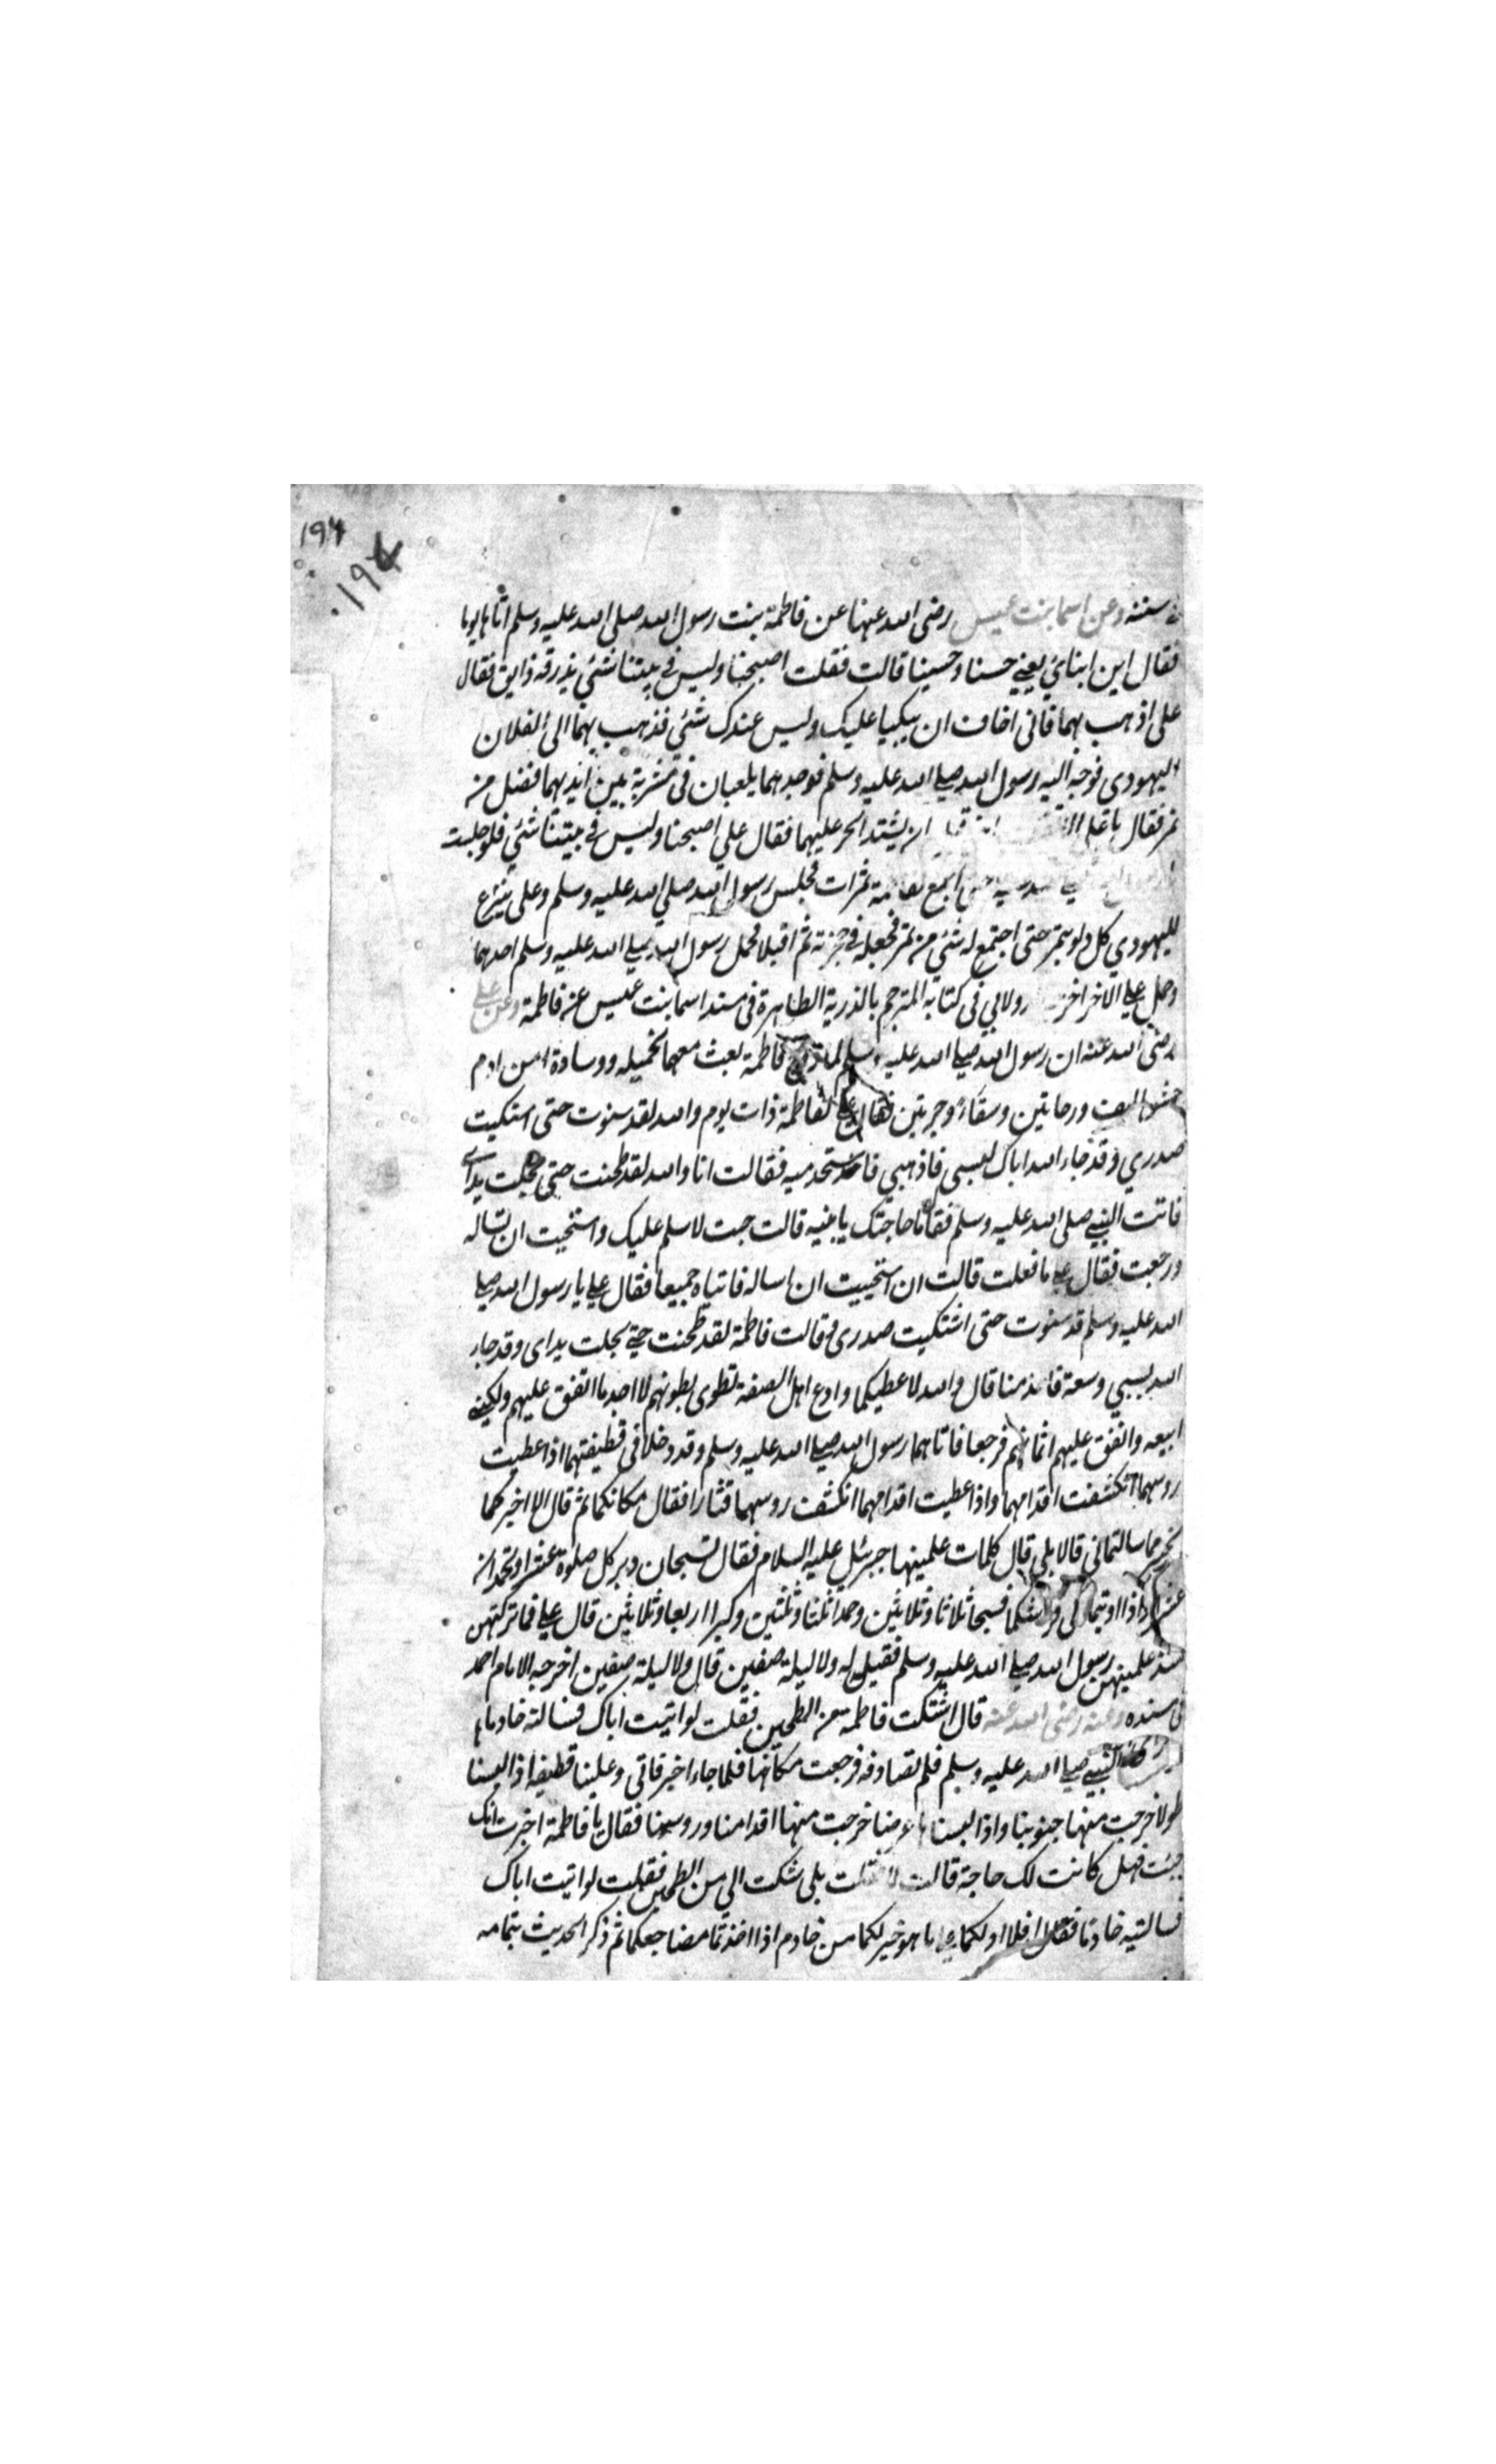 ١٩٤
١٩٤
سننه وعن اسما بنت عميس رضى الله عنها عن فاطمة بنت رسول الله صلى الله عليه وسلم اتاها يوما
فقال اين ابنائي يعني حسنا وحسينا قالت فقلت اصبحنا وليس في بيتنا شئي يذرقه ذايق فقال
على اذهب بهما فانى اخاف ان يبكيا عليك وليس عندك شئي فذهب بهما الى الفلان
اليهودى فوجه اليه رسول الله صلى الله عليه وسلم فوجدهما يلعبان فى مشربة بين ايديهما فضل من
تمر فقال يا على الا ان يشتد الحر عليهما فقال علي اصبحنا وليس في بيتنا شئي فلو جلست
حتى اجمع لفاطمة تمرات فجلس رسول الله صلى الله عليه وسلم وعلى ينزع
لليهودي كل دلو بتمر حتى اجتمع له شئي من تمر فجعله في حجزته ثم اقبلا فحمل رسول الله صلى الله عليه وسلم احدهما
وحمل علي الاخر اخرجه دولابي فى كتابه المترجم بالذرية الطاهرة فى مسند اسما بنت عميس عن فاطمة وعن علي
رضى الله عنه ان رسول الله صلى الله عليه وسلم لما زوج فاطمة بعث معهما بخميله ووسادة من ادم
حشوها ليف ورحايتين وسقاء وجرتين فقال علي لفاطمة ذات يوم والله لقد سنوت حتى استكيت
صدري وقد جاء الله اباك بسبى فاذهبي فاستخدميه فقالت انا والله لقد طحنت حتى مجلت يداى
فاتت النبي صلى الله عليه وسلم فقال ما حاجتك يا بنيه قالت جت لاسلم عليك واستحيت ان تساله
ورجعت فقال علي ما فعلت قالت ان استحييت ان اساله فاتياه جميعا فقال علي يا رسول الله صلى
الله عليه وسلم قد سنوت حتى اشتكيت صدرى وقالت فاطمة لقد طحنت حتى مجلت يداى وقد جاء
الله بسبي وسعة فاخدمنا قال والله لا عطيكما وادع اهل الصفة تطوى بطونهم لا اجد ما انفق عليهم ولكني
ابيعه وانفق عليهم اثمانهم فرجعا فاتاهما رسول الله صلى الله عليه وسلم وقد دخلا فى قطيفتهما اذا غطيت
روسهما انكشفت اقدامهما واذا غطيت اقدامهما انكشفت روسهما فثارا فقال مكانكما ثم قال الا اخبركما
بخير مما سالتمانى قالا بلى قال كلمات علمنيها جبرئيل عليه السلام فقال تسبحان دبر كل صلوة عشرا وتحمدان
عشرا واذا اويتما الى فراشكما فسبحا ثلاثا وثلاثين وحمدا ثلثا وثلثين وكبرا اربعا وثلاثين قال علي فما تركتهن
منذ علمنيهن رسول الله صلى الله عليه وسلم فقيل له ولا ليلة صفين قال ولا ليلة صفين اخرجه الامام احمد
فى مسنده وعنه رضى الله عنه قال اشتكت فاطمة من الطحين فقلت لو اتيت اباك فسالته خادما
النبي صلى الله عليه وسلم فلم تصادفه فرجعت مكانها فلما جاء اخبر فاتى وعلينا قطيفة اذا لبسنا
طولا خرجت منها جنوبنا واذا لبسناها عرضا خرجت منها اقدامنا وروسنا فقال يا فاطمة اخبرت انك
جئت فهل كانت لك حاجة قالت لا فقلت بلى شكت الي من الطحين فقلت لو اتيت اباك
فسالتيه خادما فقال افلا ادلكما على ما هو خير لكما من خادم اذا اخذتما مضاجعكما ثم ذكر الحديث بتمامه